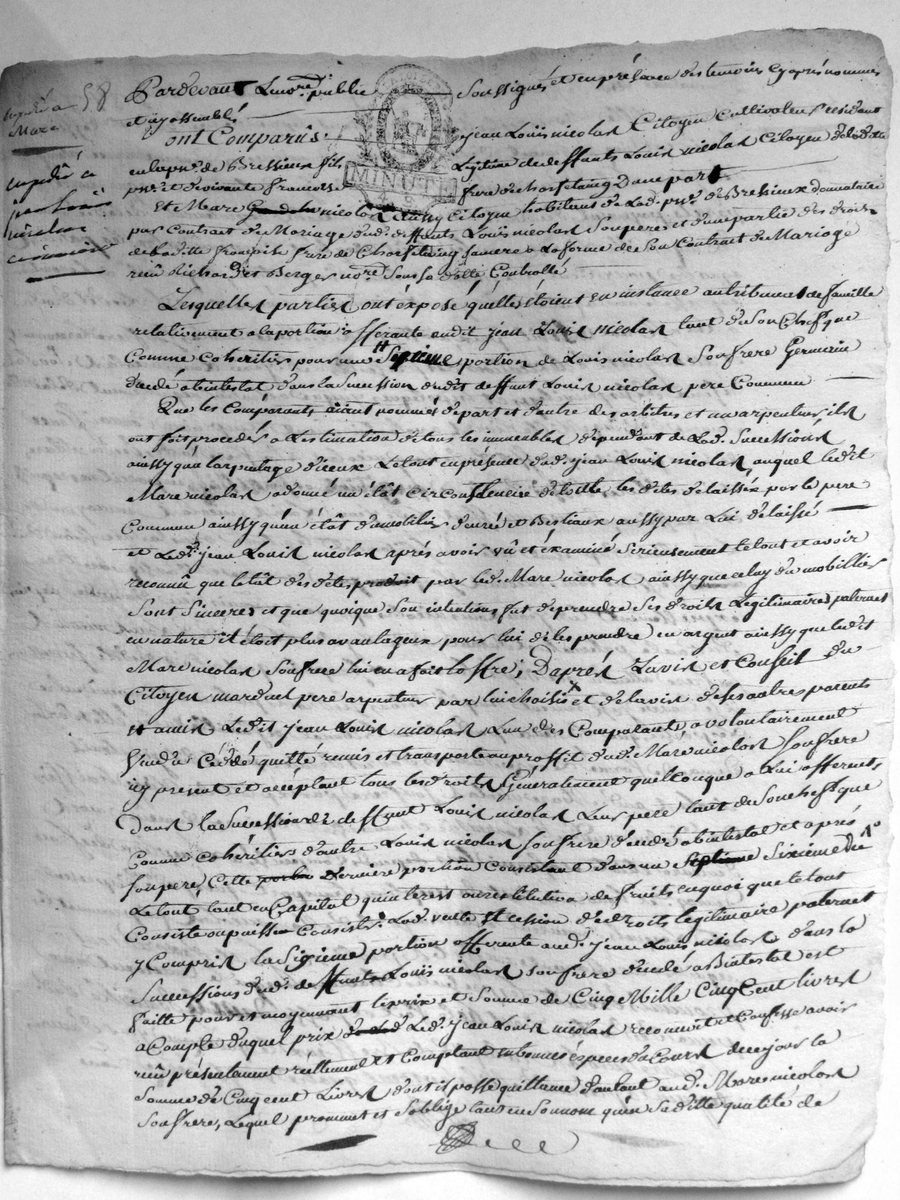 expédié a
Marc
expédié a
jean louis
nicolas
58
Pardevant Le nore. public soussigné et en présence des temoins cy après nommés
et ayassemblés
MINUTE
ont Comparus jean Louis nicolas Citoyen Cultivateur residant
en la psse. de Bressieux fils Légitime de deffunts Louis nicolas Citoyen de lad.
psse. et vivante francoise frere de Charfetaing D'une part
Et Marc nicolas aussy Citoyen habitant de Lad. psse. de Bressieux donnataire
par Contract de Mariage dud. deffunts Louis nicolas son pere et d'une partie des droits
de laditte françoise frere de Charfetaing sa mere a la forme de son Contract de Mariage
reçu Richard et Berger nore. sous sa datte Controllé
Lesquelles parties ont exposé qu'elles étoient en instance au tribunal de famille
relativement a la portion afferante audit jean Louis nicolas tant de son Chef que
Comme Cohéritier pour une Septieme portion de Louis nicolas son frere Germain
décédé abintestat dans la Sucession dudit deffunt Louis nicolas pere Commun
Que les Comparants aiant nommés d'part et d'autre des arbitres et un arpenteur, ils
ont fait procéder a L'estimation de tous les immeubles dépendant de Lad. Succession
ainssy qu'a l'arpentage d'iceux Le tout en présence dud. jean Louis nicolas, auquel ledit
Marc nicolas a donné un état circonstencié de toutte les dettes delaissée par le pere
Commun ainssy qu'un état du mobilier denrée et Bestiaux aussy par Lui délaissé
et Ledt. jean Louis nicolas après avoir vû et éxaminé sérieusement le tout et avoir
reconnû que létat des dette, produit par led. Marc nicolas ainssy que celuy du mobillier
Sont Sinceres et que quoique Son intention fut de prendre Ses droits Légitimaires paternels
en nature il étoit plus avantageux pour lui de les prendre en argent ainssy que ledit
Marc nicolas Son frere lui en a fait L'offre; D'après L'avis et Conseil du
Citoyen marduel pere arpenteur par lui choisi et de l'avis de ses autres parents
et amis Ledit jean Louis nicolas L'un des Comparants, a volontairement
Vendu Cédé quitté remis et transporté au proffit dud. Marc nicolas Son frere
icy present et acéptant tous les droits Généralement quelConque a Lui afferents
Dans la Succession de deffunt Louis nicolas Leur pere tant de Son chef que
Comme Cohéritier d'autre Louis nicolas son frere décédé abintestat et après
son pere, Cette derniere portion Consistant dans un Sixieme du
Le tout tant en Capital qu'interest ou restitution de fruits en quoi que le tout
Consiste ou puisse Consister. Lad. vente et cession dud. droits légitimaire paternels
y Compris la Sixieme portion afferante aud. jean Louis nicolas dans la
Succession dud. deffunt Louis nicolas son frere décédé abintestat est
faitte pour et moyennant le prix et Somme de Cinq Mille Cinq Cent Livres
a Compte duquel prix Led. jean Louis nicolas reconnoit et Confesse avoir
reçu présentement réellement et Comptant en bonnes éspeces du Cours de ce jour la
Somme de Cinq cent Livres dont il passe quittance d'autant aud. Marc nicolas
son frere, Lequel prommet et s'oblige tant en son nom qu'en sa ditte qualité de